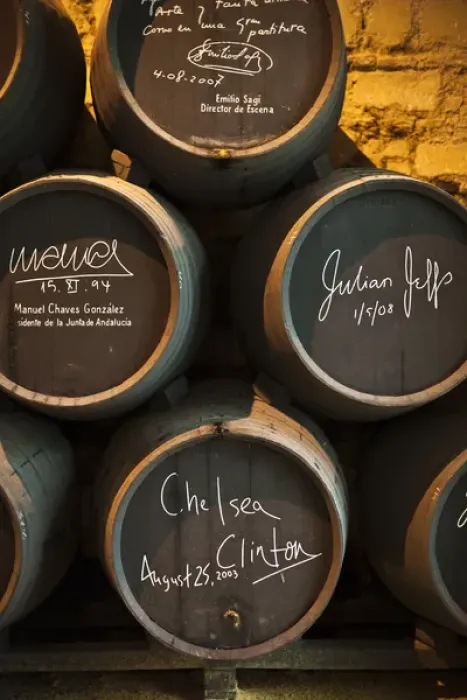 Arte y
Como en una gran partitura
Emilio Sagi
4-08-2007
Emilio Sagi
Director de Escena
Manuel
15. XI. 94
Manuel Chaves González
sidente de la Junta de Andalucia
Julian Jeffs
1/5/08
Chelsea
Clinton
August 25, 2003